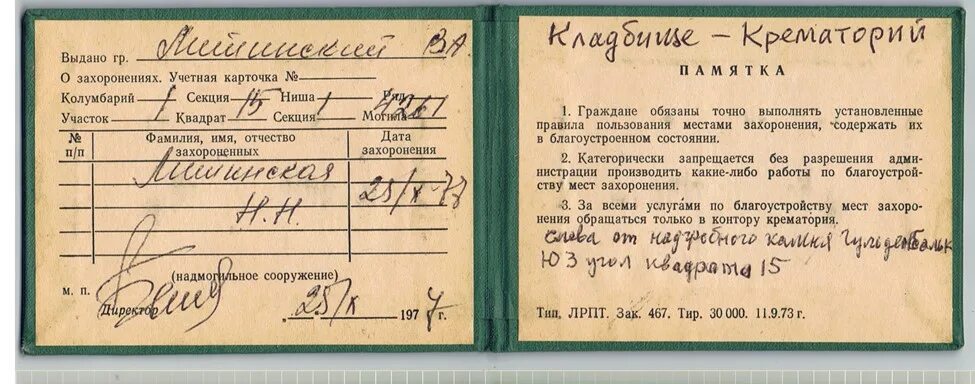 Выдано гр. Митинский В.А.
О захоронениях. Учетная карточка №
Колумбарий 1 Секция 15 Ниша 1 Ряд
Участок Квадрат Секция Могила 4261
№ п/п Фамилия, имя, отчество захороненных Дата захоронения
Митинская 25/X-77
Н.Н.
(надмогильное сооружение)
м. п.
Директор
25/X 1977 г.
Кладбище - Крематорий
ПАМЯТКА
1. Граждане обязаны точно выполнять установленные
правила пользования местами захоронения, содержать их
в благоустроенном состоянии.
2. Категорически запрещается без разрешения адми-
нистрации производить какие-либо работы по благоустрой-
ству мест захоронения.
3. За всеми услугами по благоустройству мест захоро-
нения обращаться только в контору крематория.
слева от надгробного камня
ЮЗ угол квадрата 15
Тип. ЛРПТ. Зак. 467. Тир. 30 000. 11.9.73 г.